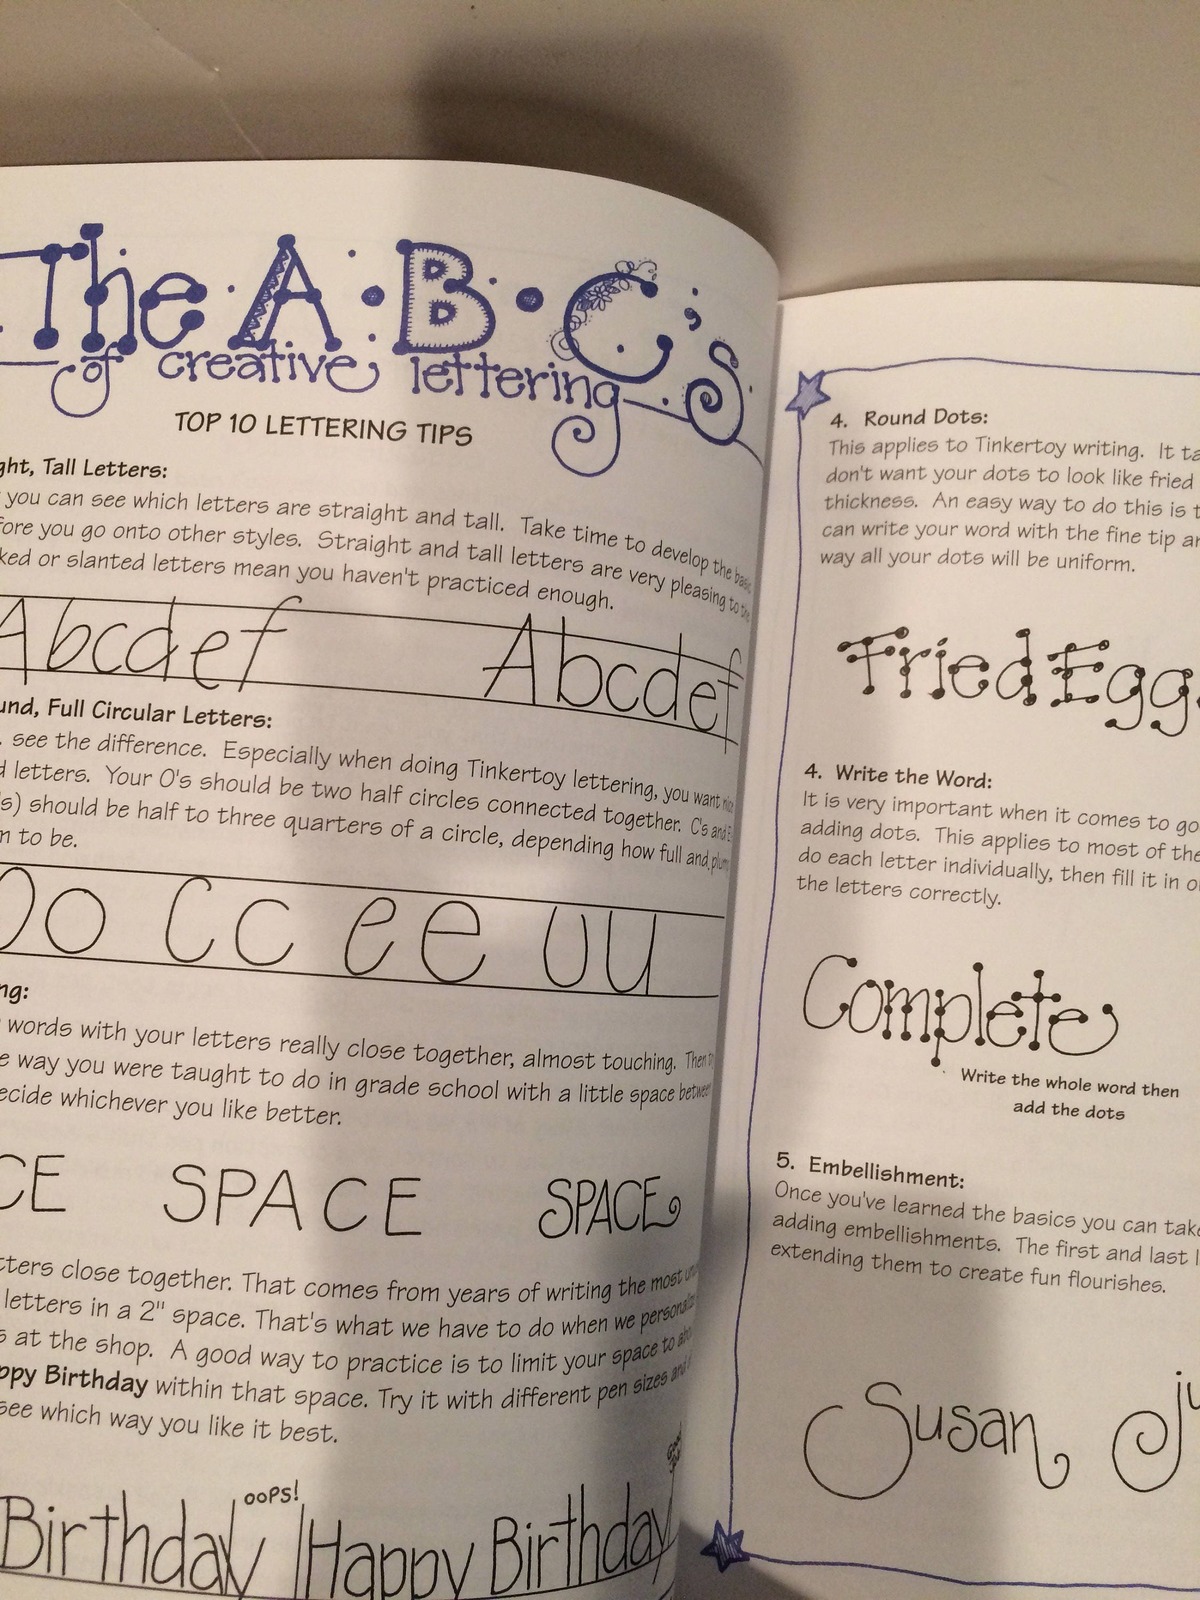 The A·B·C's
of creative lettering
TOP 10 LETTERING TIPS
ght, Tall Letters:
you can see which letters are straight and tall. Take time to develop the basic
fore you go onto other styles. Straight and tall letters are very pleasing to the
ked or slanted letters mean you haven't practiced enough.
Abcdef Abcdef
und, Full Circular Letters:
. see the difference. Especially when doing Tinkertoy lettering, you want nice
d letters. Your O's should be two half circles connected together. C's and E
's) should be half to three quarters of a circle, depending how full and plum
m to be.
Oo Cc ee uu
ng:
words with your letters really close together, almost touching. Then
e way you were taught to do in grade school with a little space between
ecide whichever you like better.
CE SPACE SPACE
tters close together. That comes from years of writing the most
letters in a 2" space. That's what we have to do when we personaliz
s at the shop. A good way to practice is to limit your space to
ppy Birthday within that space. Try it with different pen sizes and
see which way you like it best.
oops!
Birthday Happy Birthday
4. Round Dots:
This applies to Tinkertoy writing. It ta
don't want your dots to look like fried
thickness. An easy way to do this is t
can write your word with the fine tip an
way all your dots will be uniform.
Fried Eggs
4. Write the Word:
It is very important when it comes to go
adding dots. This applies to most of the
do each letter individually, then fill it in o
the letters correctly.
Complete
Write the whole word then
add the dots
5. Embellishment:
Once you've learned the basics you can take
adding embellishments. The first and last l
extending them to create fun flourishes.
Susan Ju